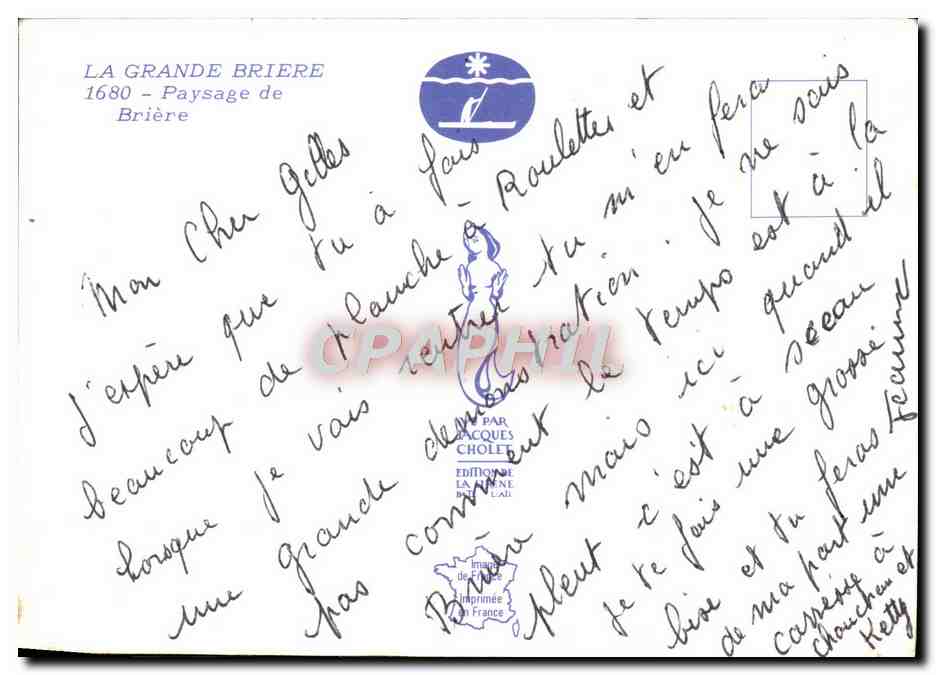 LA GRANDE BRIERE
1680 - Paysage de
Brière
Mon Cher Gilles
J'espère que tu à fais
beaucoup de planche à Roulettes et
lorsque je vais rentrer tu m'en fera
une grande démonstration. Je ne sais
pas comment le temps est à la
Brière mais ici quand il
pleut c'est à seau
Je te fais une grosse
bise et tu feras
de ma part une
caresse à
chouchou et
Kelly
VU PAR
JACQUES
CHOLET
EDITION DE
LA SIRENE
Image
de France
Imprimée
en France
CPAPHIL